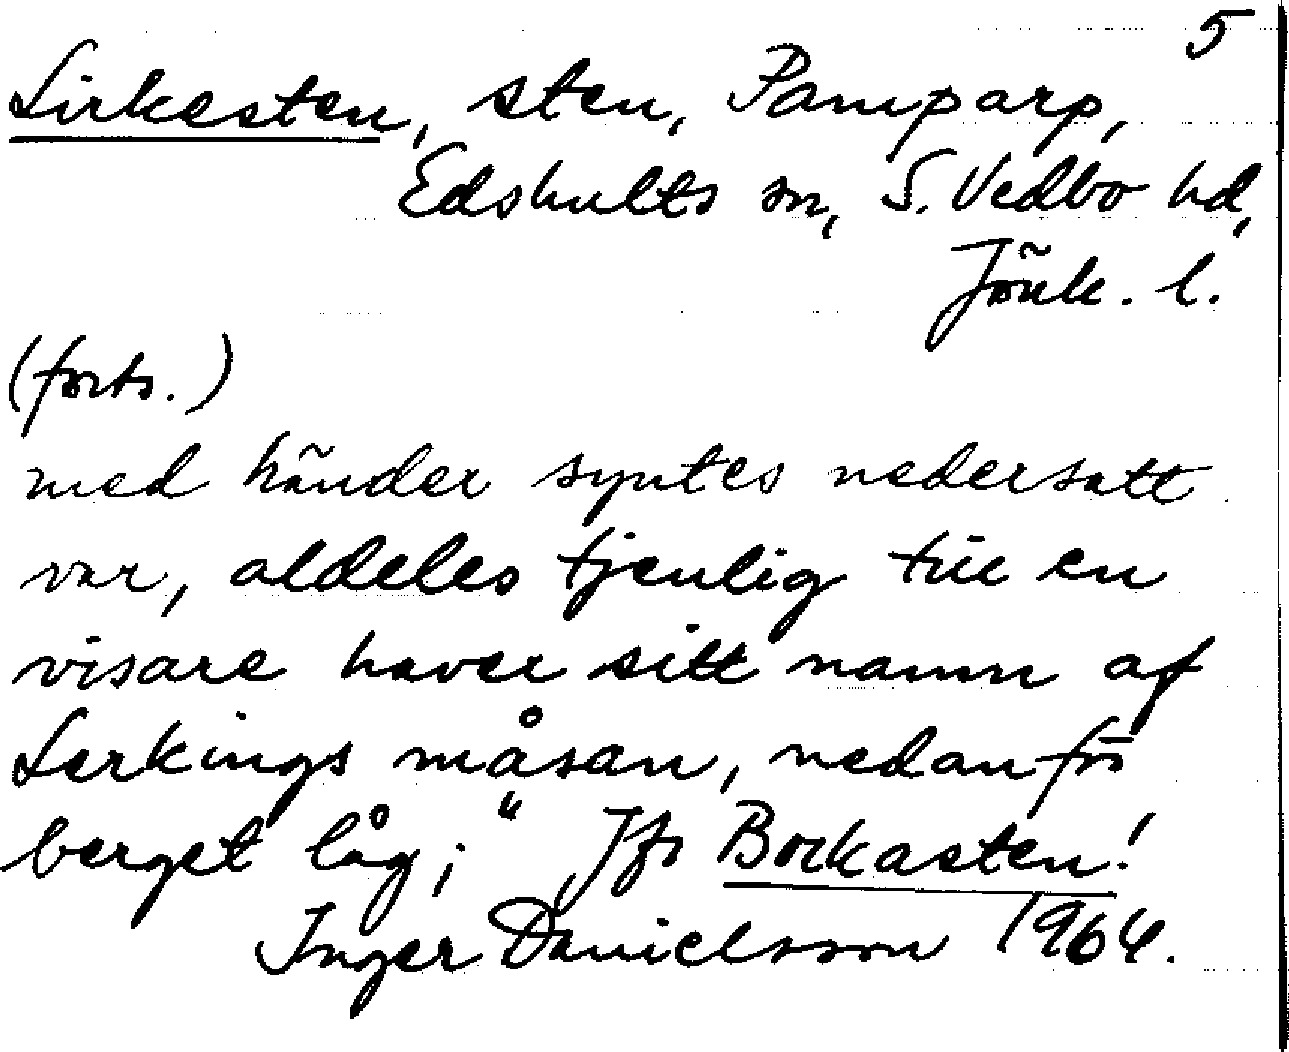 5
Lirkesten, sten, Pamparp,
Edshults sn, S. Vedbo hd,
Jönk. l.
(forts.)
med händer syntes nedersatt
var, aldeles tjenlig till en
visare haver sitt namn af
Lerkings måsan, nedanför
berget låg;" Jfr Bockasten!
Inger Danielsson 1964.